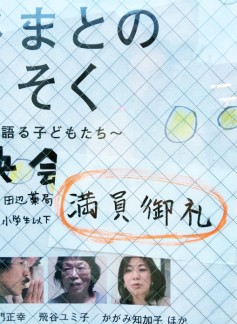 まとの
そく
語る子どもたち～
映会
田辺薬局
小学生以下
満員御礼
門正幸 飛谷ユミ子 かがみ知加子 ほか